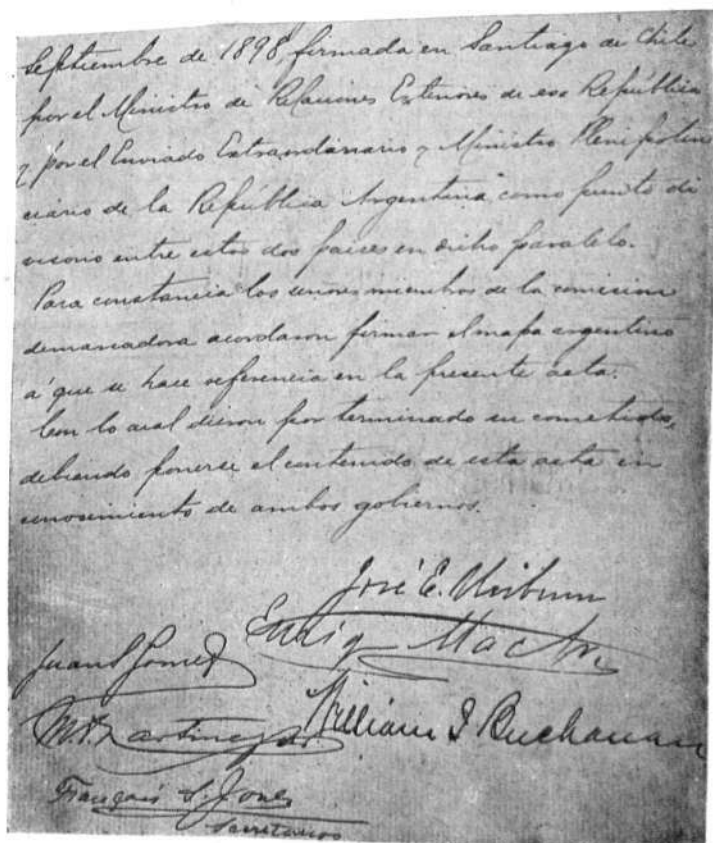 Septiembre de 1898, firmada en Santiago de Chile
por el Ministro de Relaciones Exteriores de esa República
y por el Enviado Extraordinario y Ministro Plenipoten
ciario de la República Argentina como punto di
visorio entre estos dos paises en dicho paralelo.
Para constancia los señores miembros de la comision
demarcadora acordaron firmar el mapa argentino
á que se hace referencia en la presente acta.
Con lo cual dieron por terminado su cometido,
debiendo ponerse el contenido de esta acta en
conocimiento de ambos gobiernos.
José E. Uriburu
Enriq Mac
Juan S Gomez
William I Buchanan
François S. Jones
Secretarios